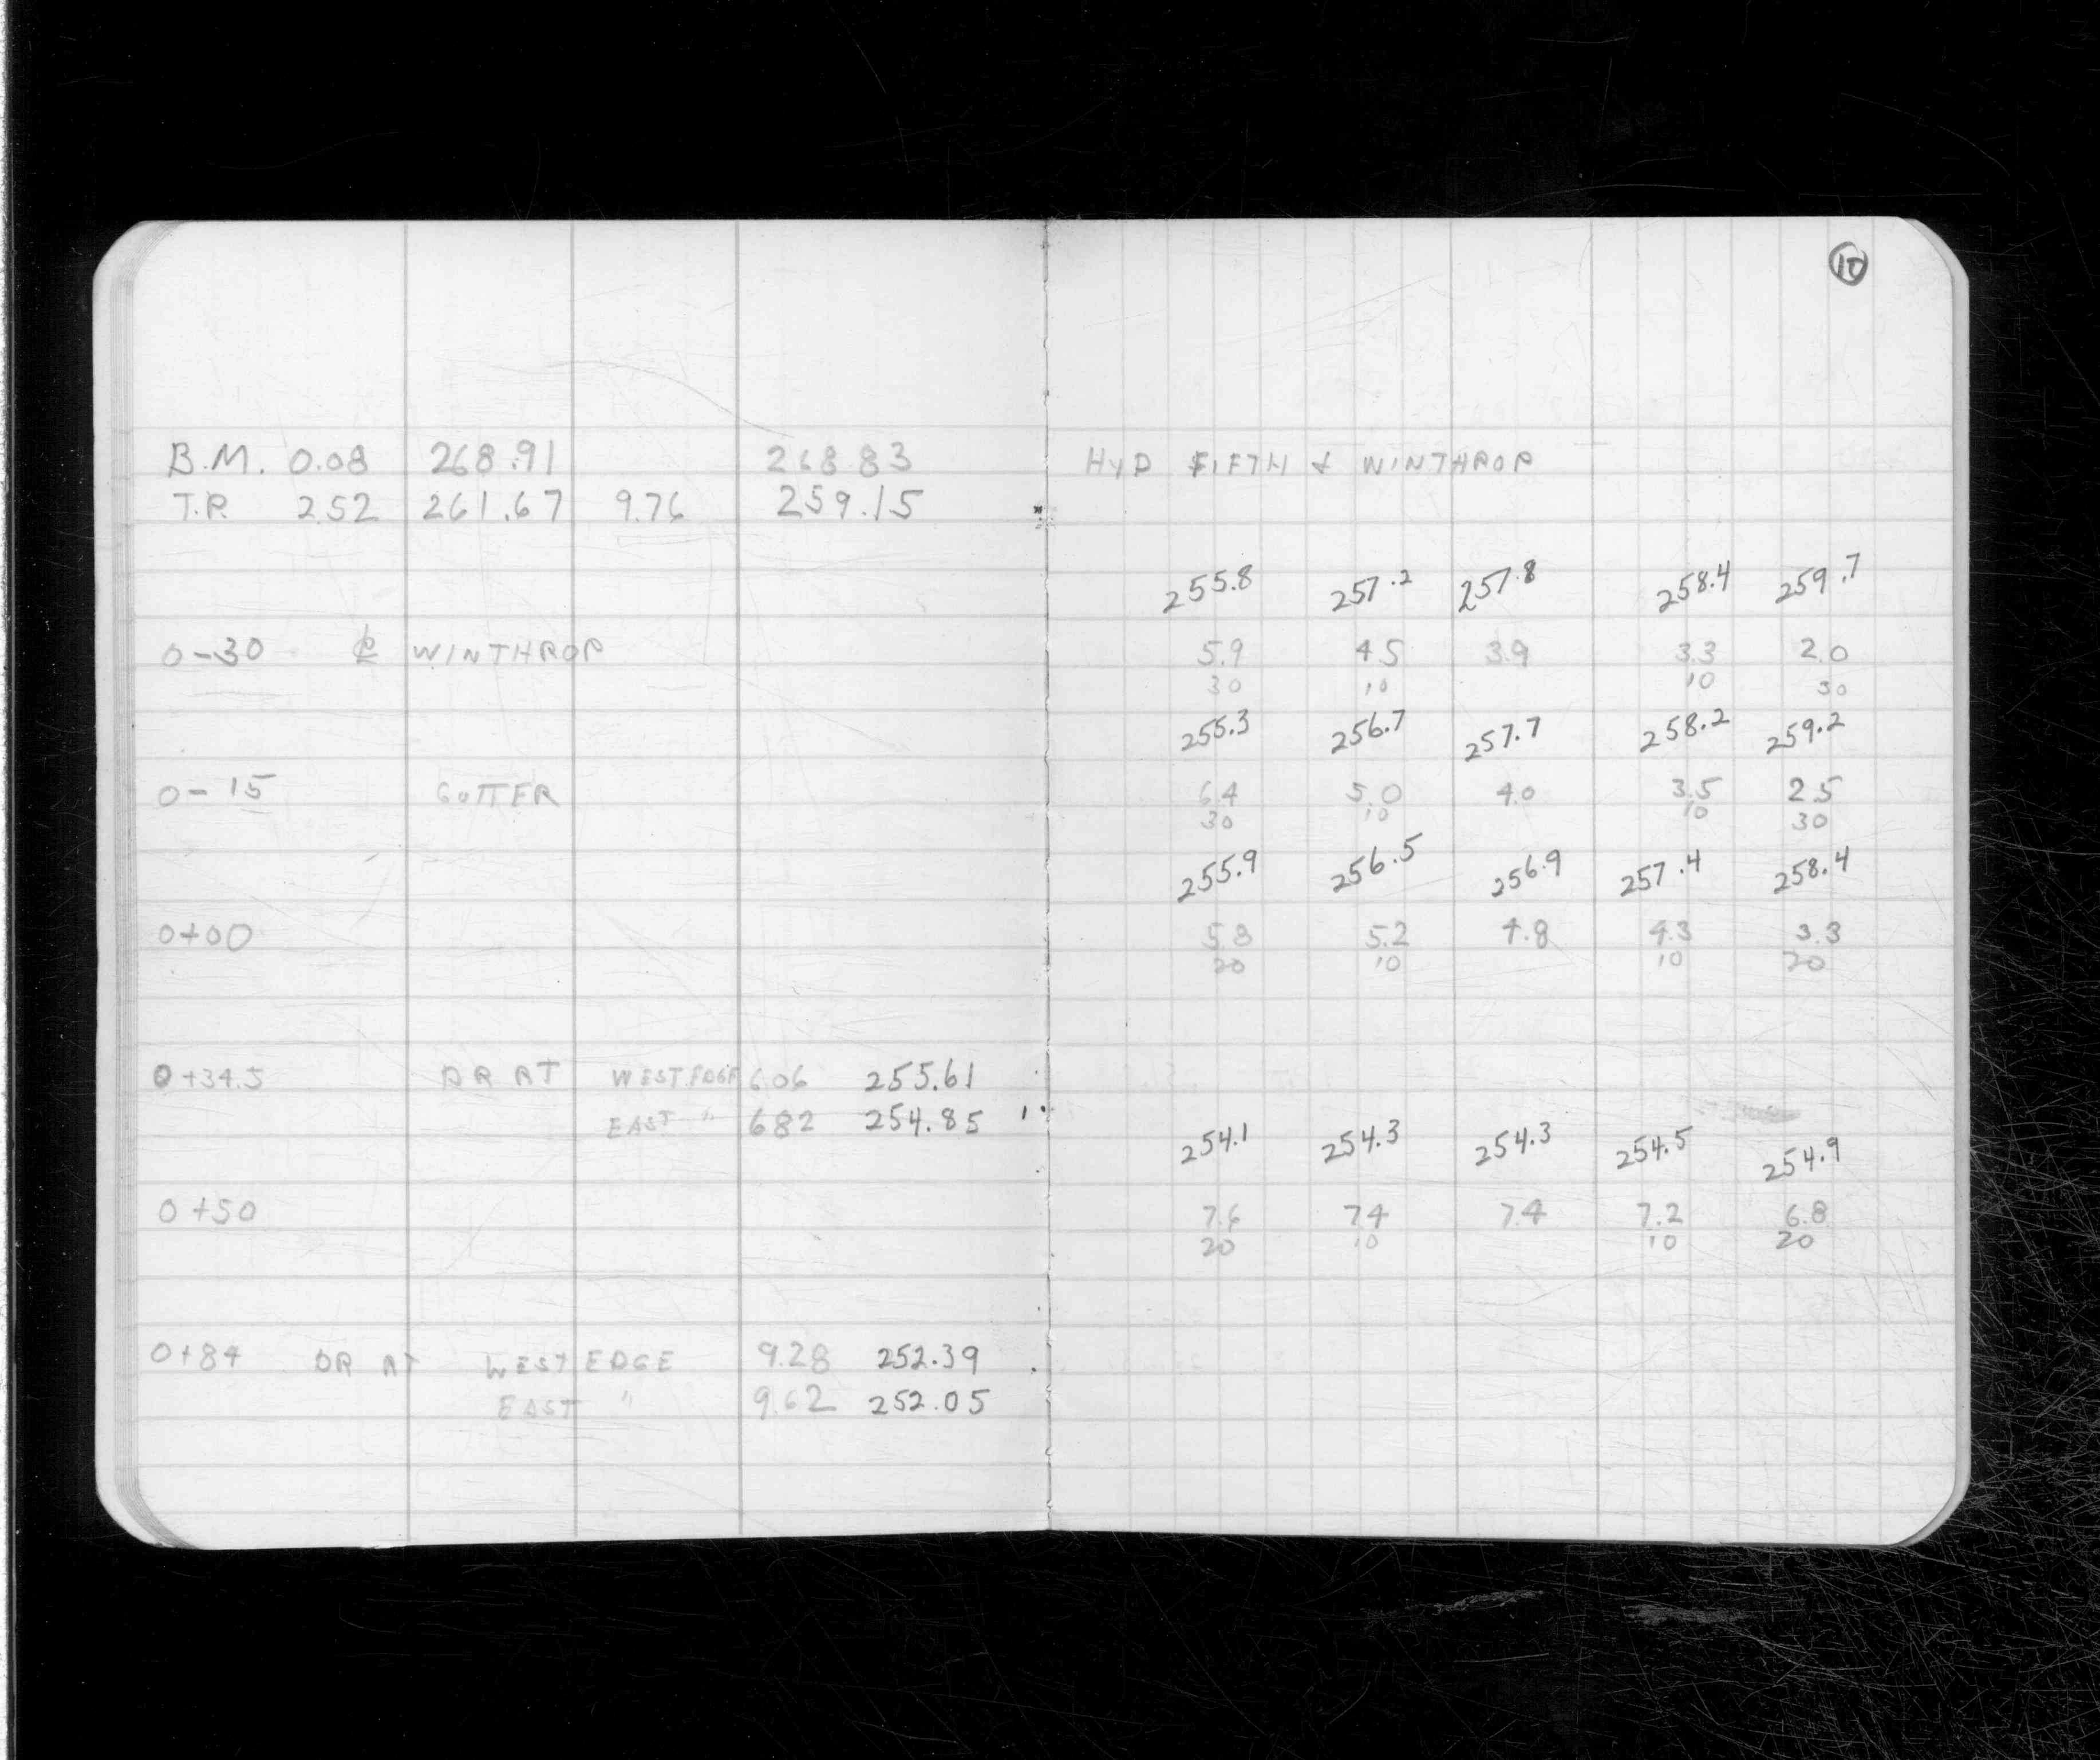 10
B.M. 0.08 268.91 268.83 HYD FIFTH & WINTHROP
T.P. 2.52 261.67 9.76 259.15
255.8 257.2 257.8 258.4 259.7
0-30 ℄ WINTHROP 5.9 4.5 3.9 3.3 2.0
30 10 10 30
255.3 256.7 257.7 258.2 259.2
0-15 GUTTER 6.4 5.0 4.0 3.5 2.5
30 10 10 30
255.9 256.5 256.9 257.4 258.4
0+00 5.8 5.2 4.8 4.3 3.3
20 10 10 20
0+34.5 DR AT WEST EDGE 6.06 255.61
EAST " 682 254.85
254.1 254.3 254.3 254.5 254.9
0+50 7.6 7.4 7.4 7.2 6.8
20 10 10 20
0+84 DR AT WEST EDGE 9.28 252.39
EAST " 9.62 252.05